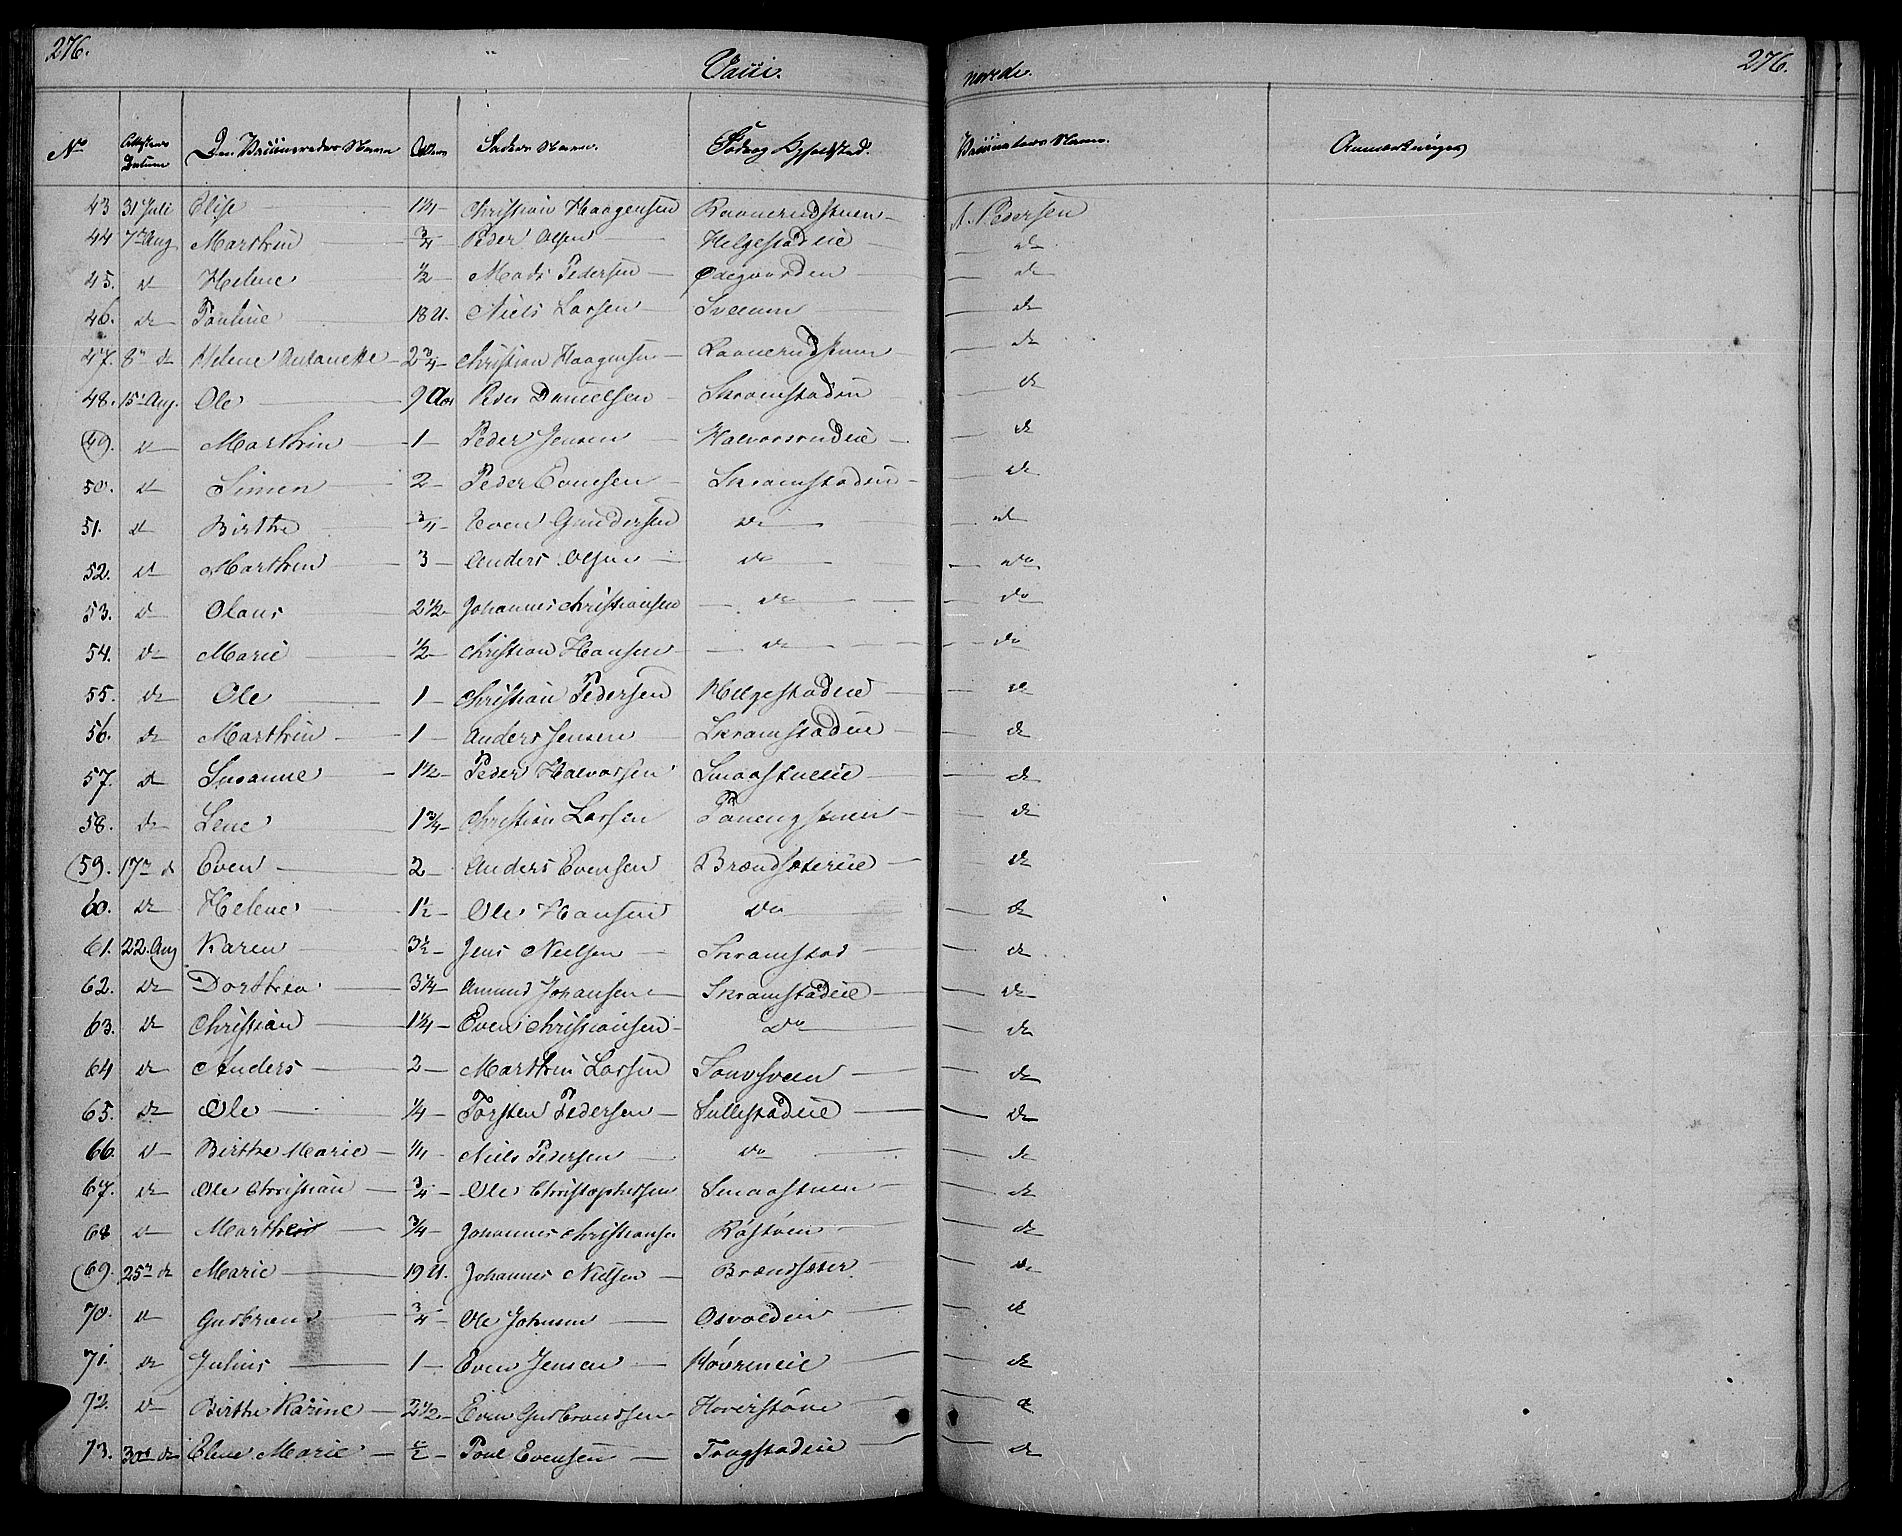 276. Vacci- nerede. 276.
No Attestens Datum Den Vaccineredes Navn Alder Faders Navn. Føde og Opholdsted. Vaccinateurs Navn. Anmærkninger
43 31 Juli Elise 1 1/4 Christian Haagensen Raanerudstuen A. Pedersen
44 7de Aug Marthin 3/4 Peder Olsen Helgestadeie do
45. do Helene 1/2 Mads Pedersen Ødegaarden do
46. do Pauline 18 U. Niels Larsen Sveeum do
47. 8de do Helene Antonette 2 3/4 Christian Haagensen Raanerudstuen do
48. 15de Aug. Ole 9 Aar Peder Danielsen Skramstadeie do
49. do Marthin 1 Peder Jensen Halvorsrudeie do
50. do Simen 2 Peder Evensen Skramstadeie do
51. do Birthe 3/4 Even Gundersen do do
52. do Marthin 3 Anders Olsen do do
53. do Olaus 2 1/2 Johannes Christiansen do do
54. do Marie 1/2 Christian Hansen do do
55. do Ole 1 Christian Pedersen Helgestadeie do
56. do Marthin 1 Anders Jensen Skramstadeie do
57. do Susanne 1 1/2 Peder Halvorsen Smaastueeie do
58. do Lene 1 3/4 Christian Larsen do
59. 17de do Even 2 Anders Evensen Brændsætereie do
60. do Helene 1 1/2 Ole Hansen do do
61. 22. Aug Karen 3 1/2 Jens Nielsen Skramstad do
62. do Dorthea 3 1/4 Amund Johansen Skramstadeie do
63. do Christian 1 1/4 Even Christiansen do do
64 do Anders 2 Marthin Larsen do
65. do Ole 1/4 Torsten Pedersen Sullestadeie do
66. do Birthe Marie 1/4 Niels Pedersen do do
67. do Ole Christian 3/4 Ole Christophersen Smaastuen do
68 do Marthea 3/4 Johannes Christiansen Røstøen do
69. 25de do Marie 19 U. Johannes Nielsen Brændsæter do
70. do Gudbrand 3/4 Ole Johnsen Osvoldeie do
71. do Julius 1 Even Jensen Høvreneie do
72. do Birthe Karine 2 1/2 Even Gudbrandsen Hoverstøen do
73. 30te do Elene Marie 1/2 Poul Evensen Trogstadeie do